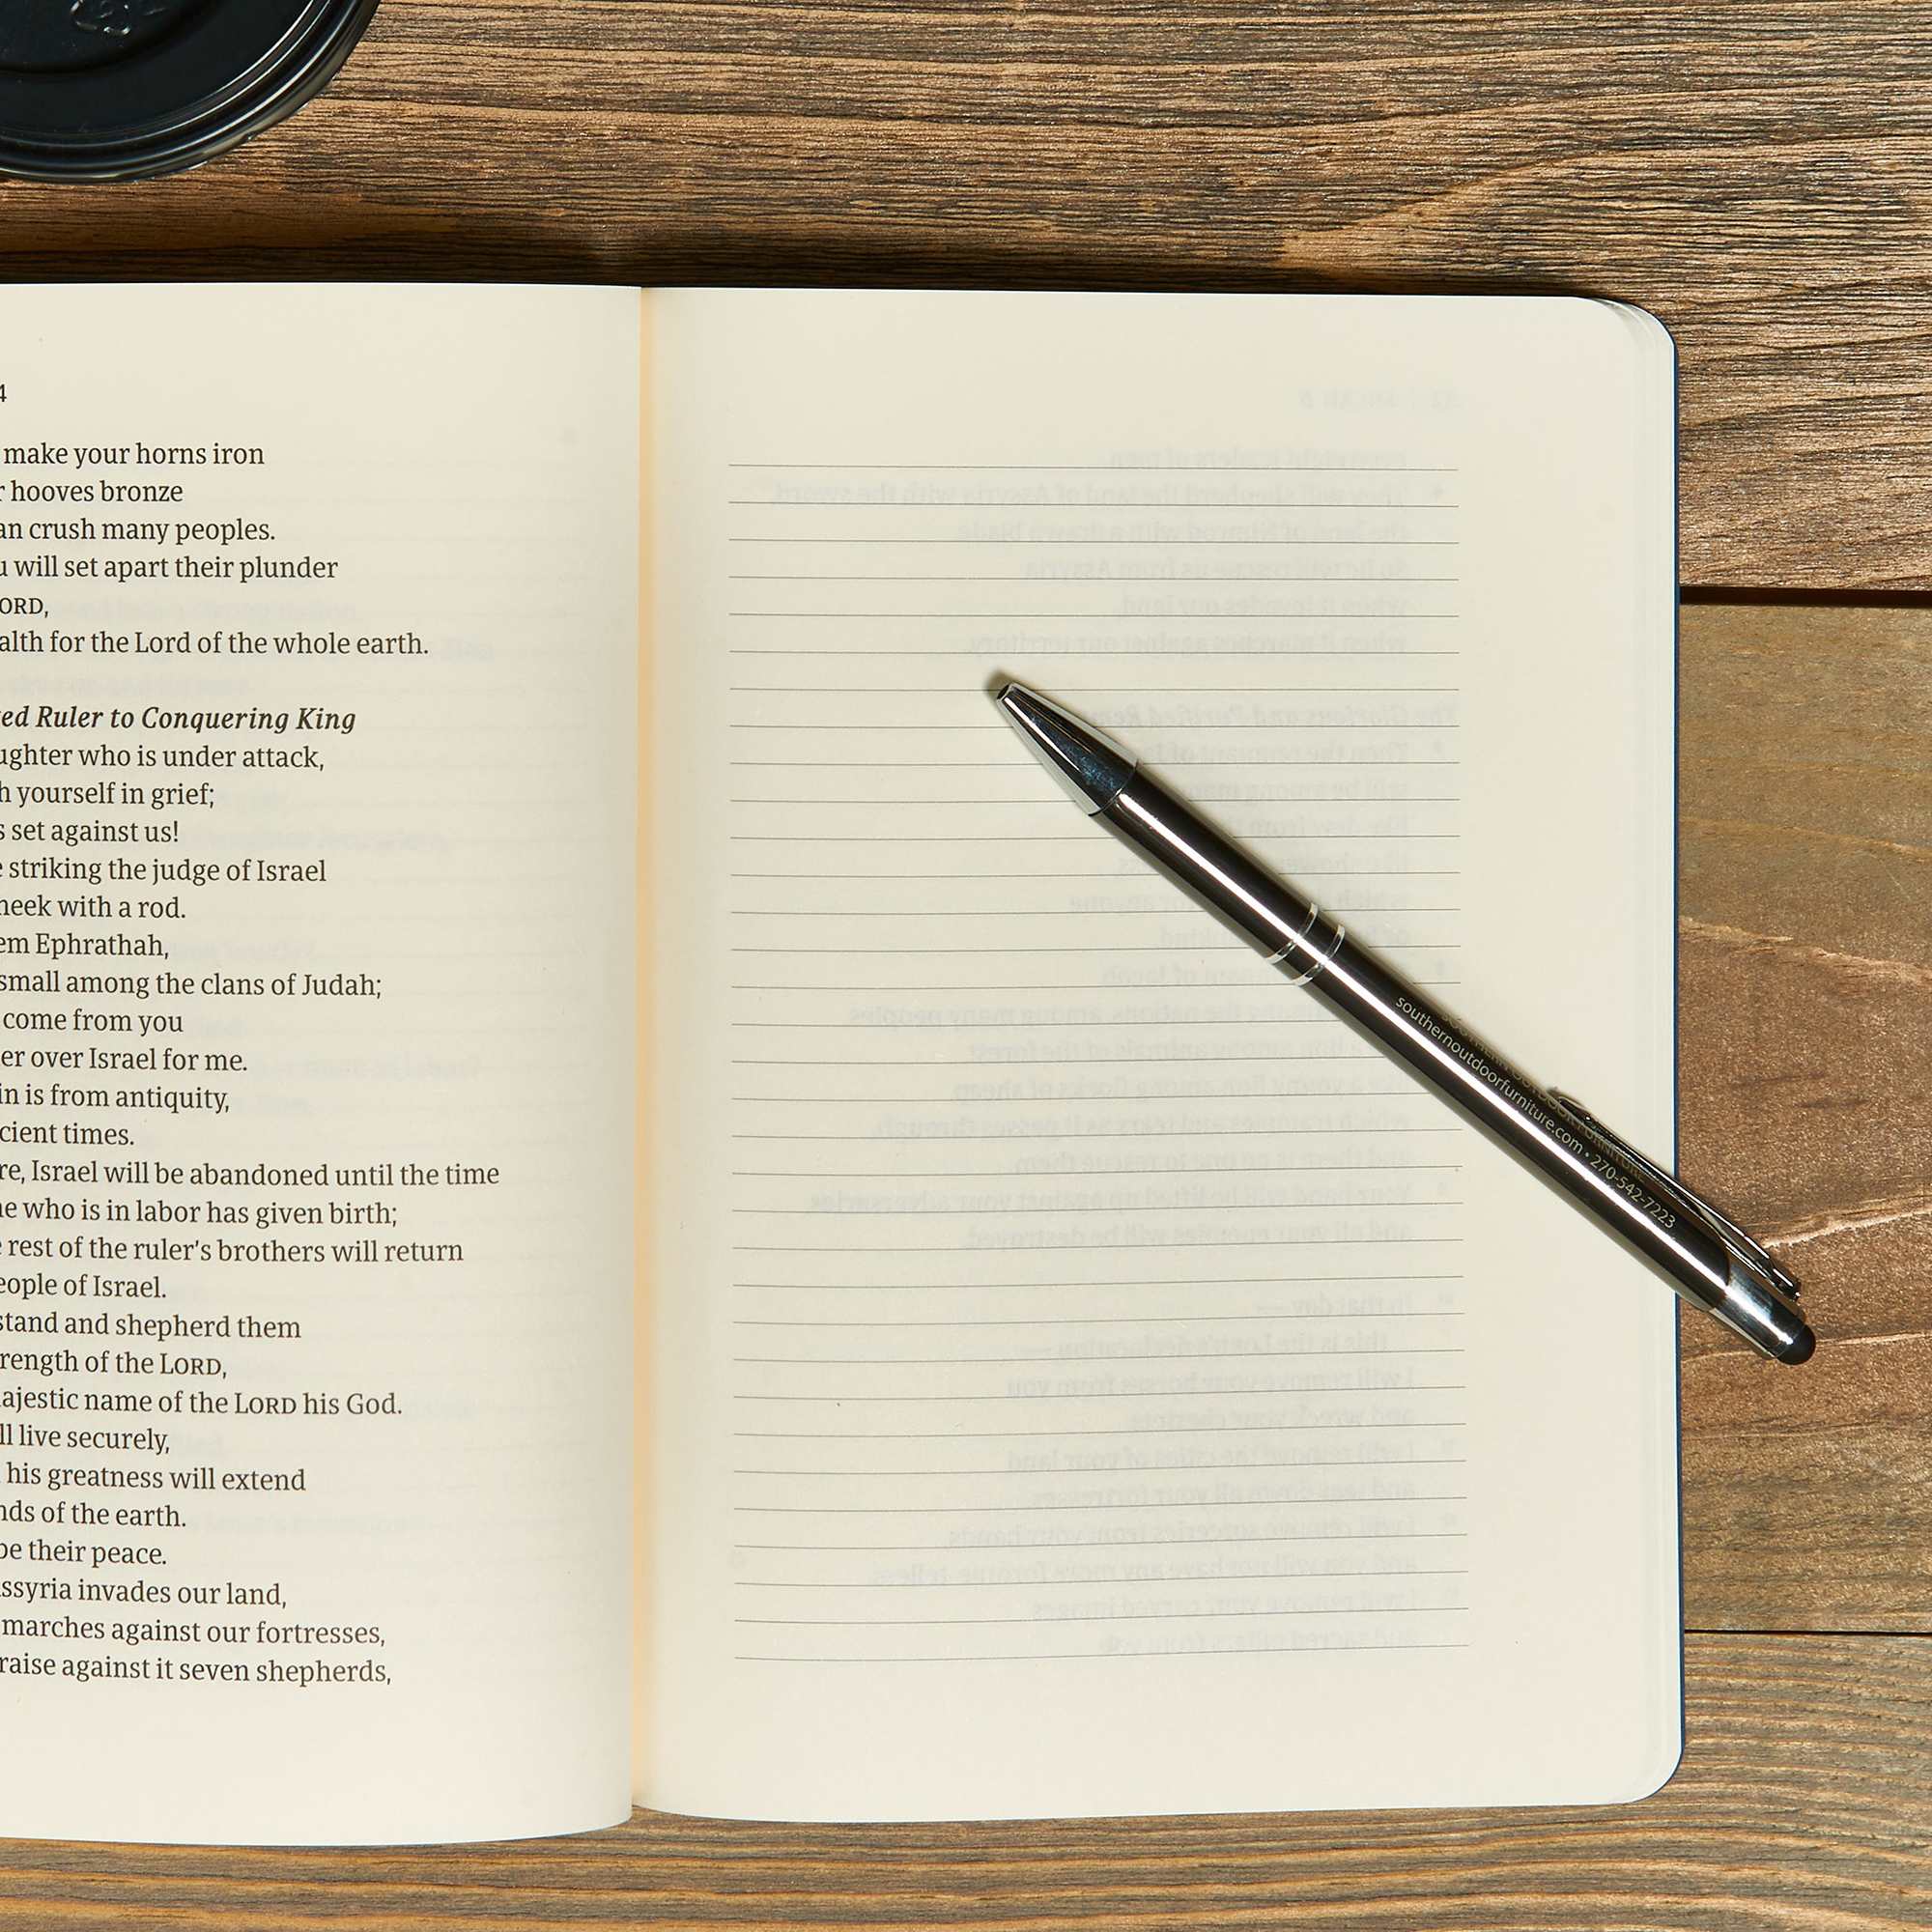 4
make your horns iron
hooves bronze
an crush many peoples.
will set apart their plunder
ORD,
alth for the Lord of the whole earth.
ed Ruler to Conquering King
ughter who is under attack,
h yourself in grief;
s set against us!
e striking the judge of Israel
heek with a rod.
em Ephrathah,
small among the clans of Judah;
come from you
er over Israel for me.
in is from antiquity,
cient times.
re, Israel will be abandoned until the time
he who is in labor has given birth;
e rest of the ruler's brothers will return
eople of Israel.
stand and shepherd them
trength of the LORD,
ajestic name of the LORD his God.
ll live securely,
his greatness will extend
nds of the earth.
be their peace.
ssyria invades our land,
marches against our fortresses,
raise against it seven shepherds,
SOUTHERN OUTDOOR FURNITURE
southernoutdoorfurniture.com • 270-542-7223